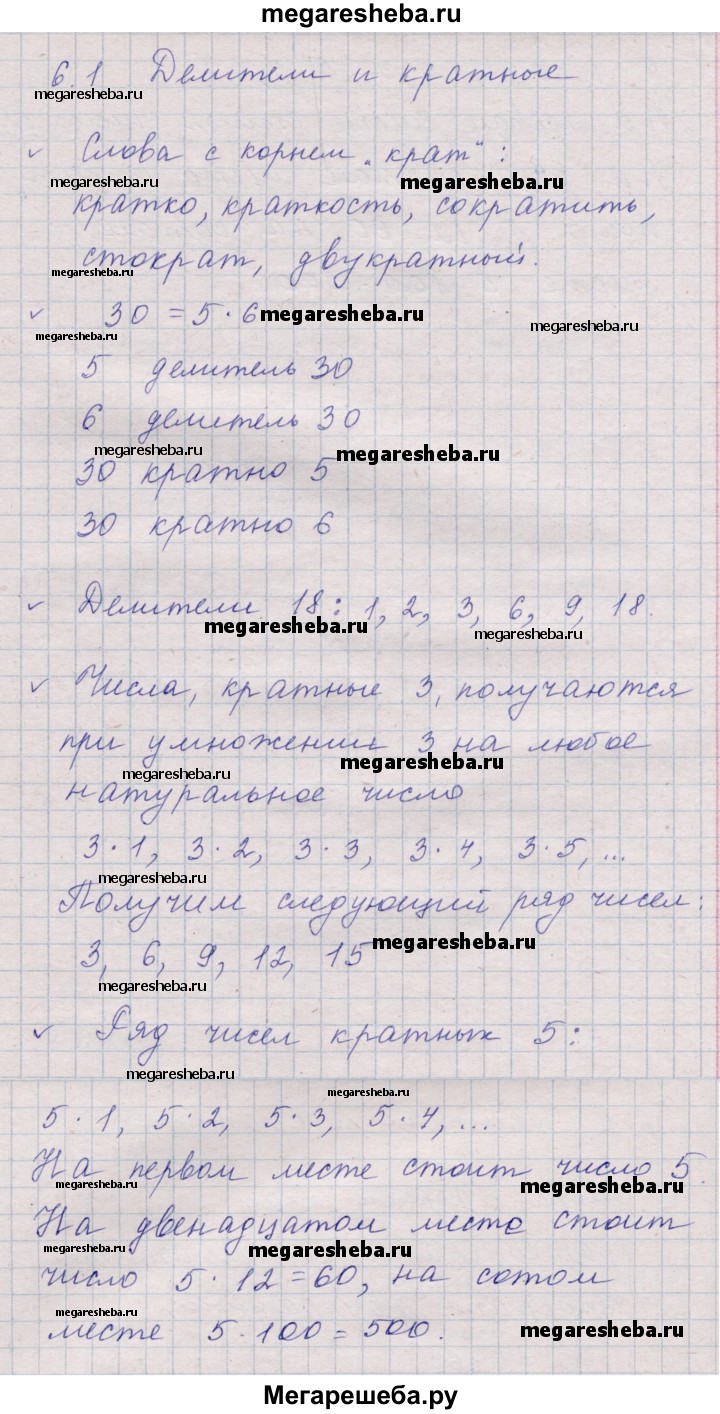 megaresheba.ru
6.1 Делители и кратные
megaresheba.ru
✓ Слова с корнем „крат“:
megaresheba.ru megaresheba.ru
кратко, краткость, сократить,
стократ, двукратный.
megaresheba.ru
✓ 30 = 5 · 6 megaresheba.ru megaresheba.ru
megaresheba.ru
5 делитель 30
6 делитель 30
megaresheba.ru megaresheba.ru
30 кратно 5
30 кратно 6
✓ Делители 18: 1, 2, 3, 6, 9, 18.
megaresheba.ru megaresheba.ru
✓ Числа, кратные 3, получаются
при умножении 3 на любое
megaresheba.ru megaresheba.ru
натуральное число
3·1, 3·2, 3·3, 3·4, 3·5, ...
megaresheba.ru
Получим следующий ряд чисел:
3, 6, 9, 12, 15 megaresheba.ru
megaresheba.ru
✓ Ряд чисел кратных 5:
megaresheba.ru
megaresheba.ru
5·1, 5·2, 5·3, 5·4, ...
На первом месте стоит число 5.
megaresheba.ru megaresheba.ru
На двенадцатом месте стоит
megaresheba.ru megaresheba.ru
число 5·12=60, на сотом
megaresheba.ru
месте 5·100=500. megaresheba.ru
Мегарешеба.ру